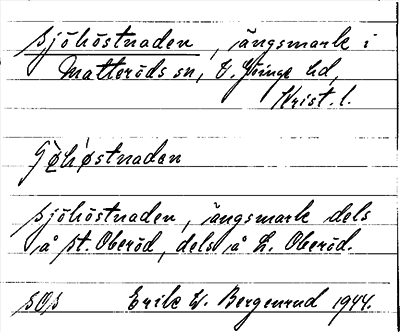 Sjöhöstnaden, ängsmark i
Matteröds sn, V. Göinge hd,
Krist. l.
Sjöhöstnaden, ängsmark dels
å St. Oberöd, dels å L. Oberöd.
SOS Erik W. Bergenrud 1944.